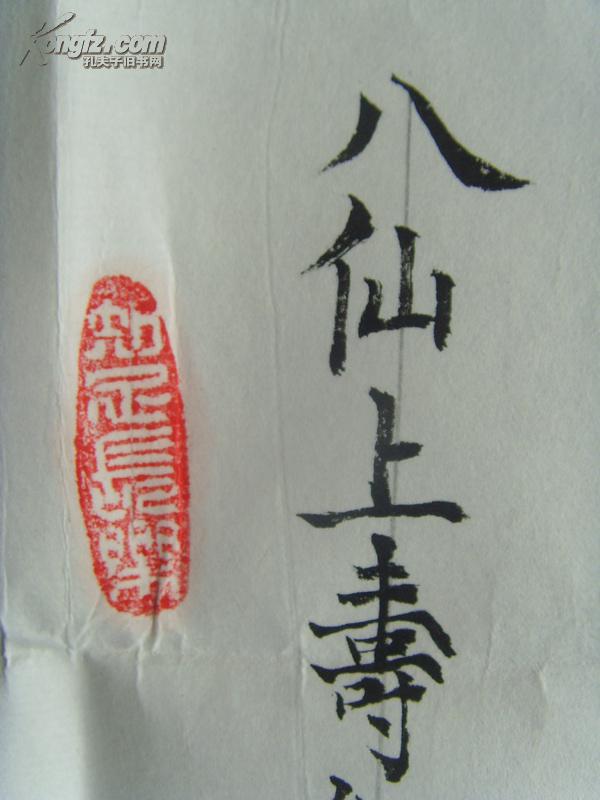 Kongfz.com
孔夫子旧书网
八仙上壽
知足長樂